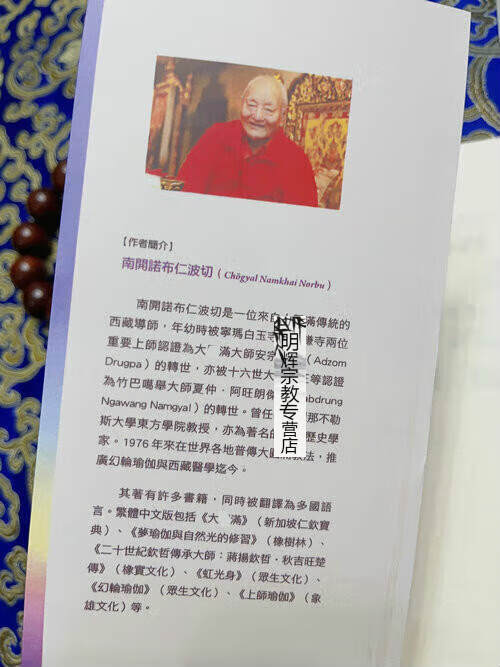 【作者簡介】
南開諾布仁波切（Chögyal Namkhai Norbu）
南開諾布仁波切是一位來自 滿傳統的
西藏導師，年幼時被寧瑪白玉寺 寺兩位
重要上師認證為大 滿大師安宗 （Adzom
Drugpa）的轉世，亦被十六世大 等認證
為竹巴噶舉大師夏仲．阿旺朗 abdrung
Ngawang Namgyal）的轉世。曾任 那不勒
斯大學東方學院教授，亦為著名的 歷史學
家。1976 年來在世界各地普傳大 教法，推
廣幻輪瑜伽與西藏醫學迄今。
其著有許多書籍，同時被翻譯為多國語
言。繁體中文版包括《大 滿》（新加坡仁欽寶
典）、《夢瑜伽與自然光的修習》（橡樹林）、
《二十世紀欽哲傳承大師：蔣揚欽哲．秋吉旺楚
傳》（橡實文化）、《虹光身》（眾生文化）、
《幻輪瑜伽》（眾生文化）、《上師瑜伽》（象
雄文化）等。
明辉宗教专营店